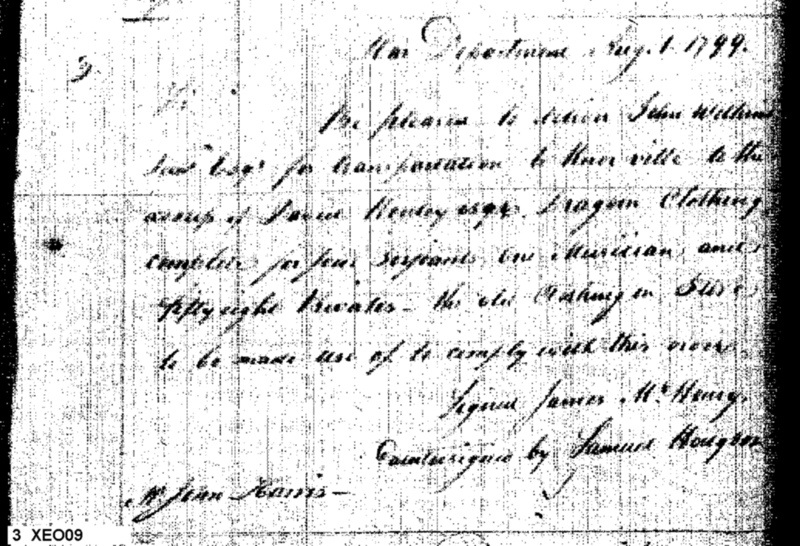 War Department Aug. 1. 1799.
3.
Sir
Be pleased to deliver John Wilkins
Junr Esqr for transportation to Knoxville to the
of David Henley esqr. Dragoon Clothing
complete for four Serjeants, One Musician, and
fifty eight Privates — the old Clothing in Store
to be made use of to comply with this order.
Signed James McHenry.
Countersigned by Samuel Hodgdon
Mr John Harris —
3 XEO09